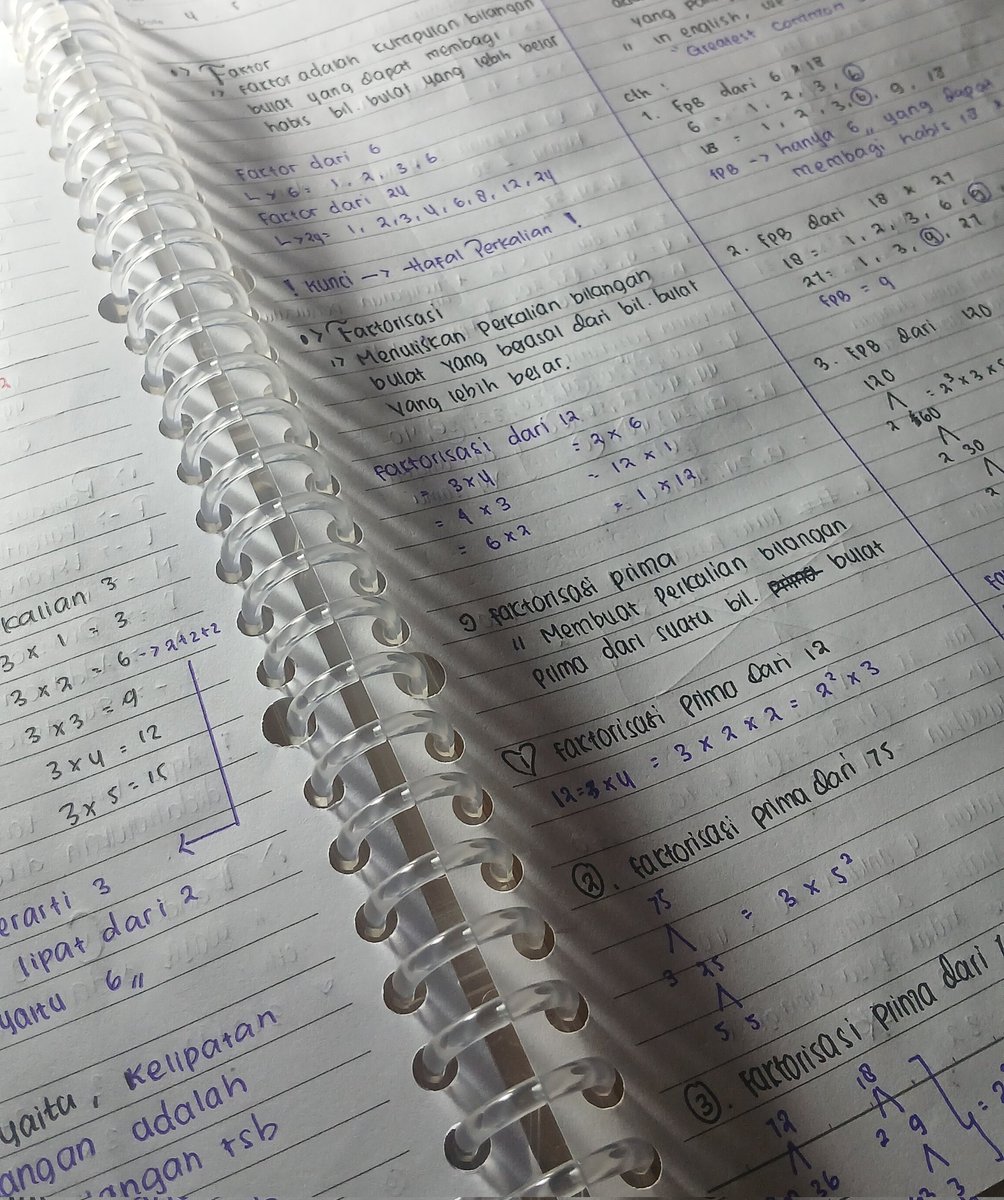 4 5
Faktor
Faktor adalah kumpulan bilangan
bulat yang dapat membagi
habis bil. bulat yang lebih besar
Faktor dari 6
↳ 6 = 1, 2, 3, 6
Faktor dari 24
↳ 24 = 1, 2, 3, 4, 6, 8, 12, 24
! Kunci → Hafal Perkalian !
Faktorisasi
Menuliskan Perkalian bilangan
bulat yang berasal dari bil. bulat
yang lebih besar.
Faktorisasi dari 12
= 3 x 4 = 2 x 6
= 4 x 3 = 12 x 1
= 6 x 2 = 1 x 12
Faktorisasi prima
" Membuat Perkalian bilangan
prima dari suatu bil. bulat
① Faktorisasi prima dari 12
12 = 3 x 4 = 3 x 2 x 2 = 2² x 3
②. Faktorisasi prima dari 75
75
= 3 x 5²
3 25
5 5
③. Faktorisasi prima dari
72 18
2 9
36 3
yang
" in english,
Greatest Common
cth :
1. FPB dari 6 & 18
6 = 1, 2, 3, 6
18 = 1, 2, 3, 6, 9, 18
FPB → hanya 6 yang dapat
membagi habis 18
2. FPB dari 18 & 27
18 = 1, 2, 3, 6, 9
27 = 1, 3, 9, 27
FPB = 9
3. FPB dari 120
120
= 2³ x 3 x 5
2 60
2 30
2
kalian 3
3 x 1 = 3
3 x 2 = 6 → 2+2+2
3 x 3 = 9
3 x 4 = 12
3 x 5 = 15
erarti 3
lipat dari 2
yaitu 6 "
yaitu, Kelipatan
angan adalah
angan tsb